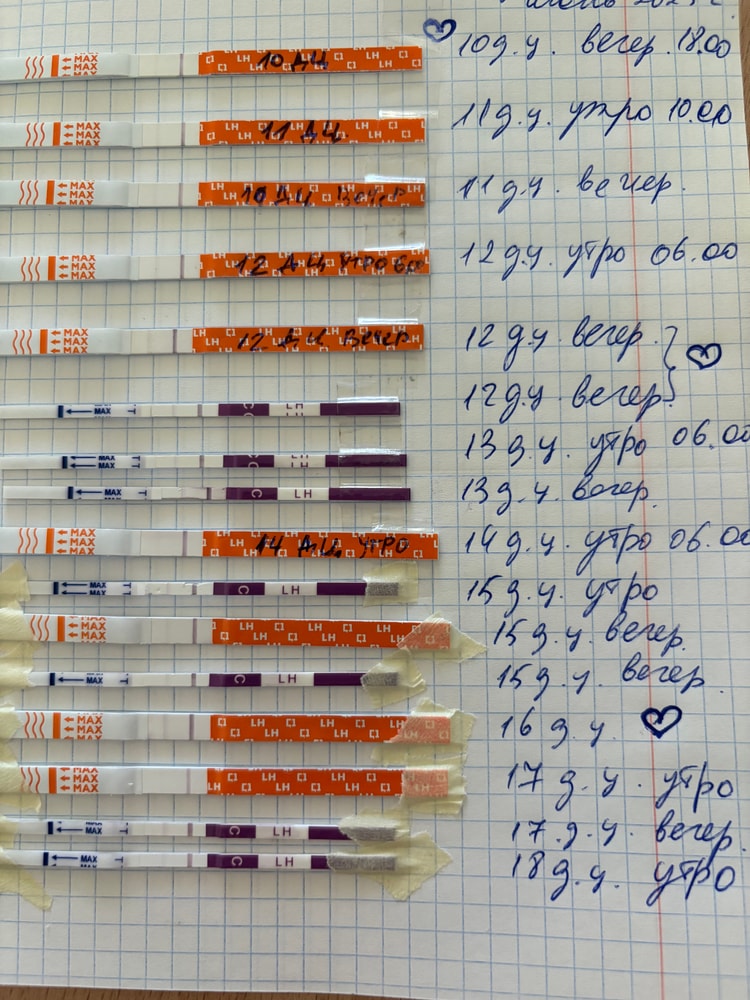 июнь 2023 г.
MAX MAX MAX 10 ДЦ LH 10 д.ц. вечер 18.00
MAX MAX MAX 11 ДЦ LH 11 д.ц. утро 10.00
MAX MAX MAX 10 ДЦ Вечер LH 11 д.ц. вечер.
MAX MAX MAX 12 ДЦ Утро 6:00 LH 12 д.ц. утро 06.00
MAX MAX MAX 12 ДЦ Вечер LH 12 д.ц вечер.
MAX LH 12 д.ц вечер.
MAX LH 13 д.ц. утро 06.00
MAX T C LH 13 д.ц. вечер.
MAX MAX MAX 14 ДЦ Утро LH 14 д.ц. утро 06.00
MAX T C LH 15 д.ц. утро
MAX MAX MAX LH LH LH LH 15 д.ц. вечер.
MAX T C LH 15 д.ц. вечер.
MAX MAX MAX LH LH LH LH 16 д.ц.
MAX MAX MAX LH LH LH LH 17 д.ц. утро
MAX T C LH 17 д.ц. вечер.
MAX T C LH 18 д.ц. утро